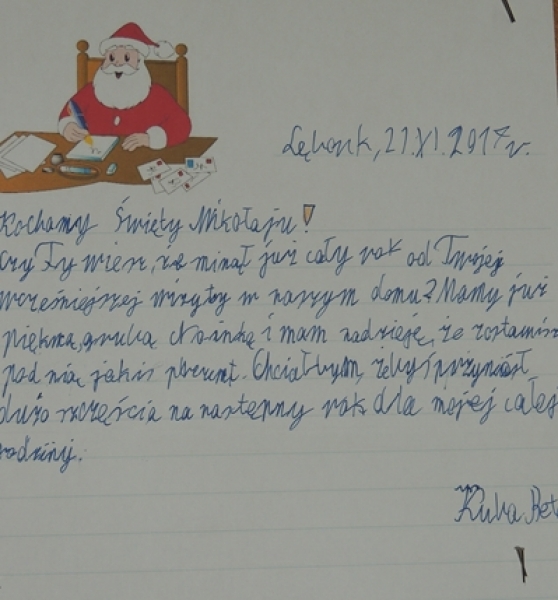 Lębork, 21.XI.2017r.
Kochamy Święty Mikołaju!
Czy Ty wiesz, że minął już cały rok od Twojej
wcześniejszej wizyty w naszym domu? Mamy już
piękną, grubą choinkę i mam nadzieję, że zostawisz
pod nią jakiś prezent. Chciałbym, żebyś przyniósł
dużo szczęścia na następny rok dla mojej całej
rodziny.
Kuba